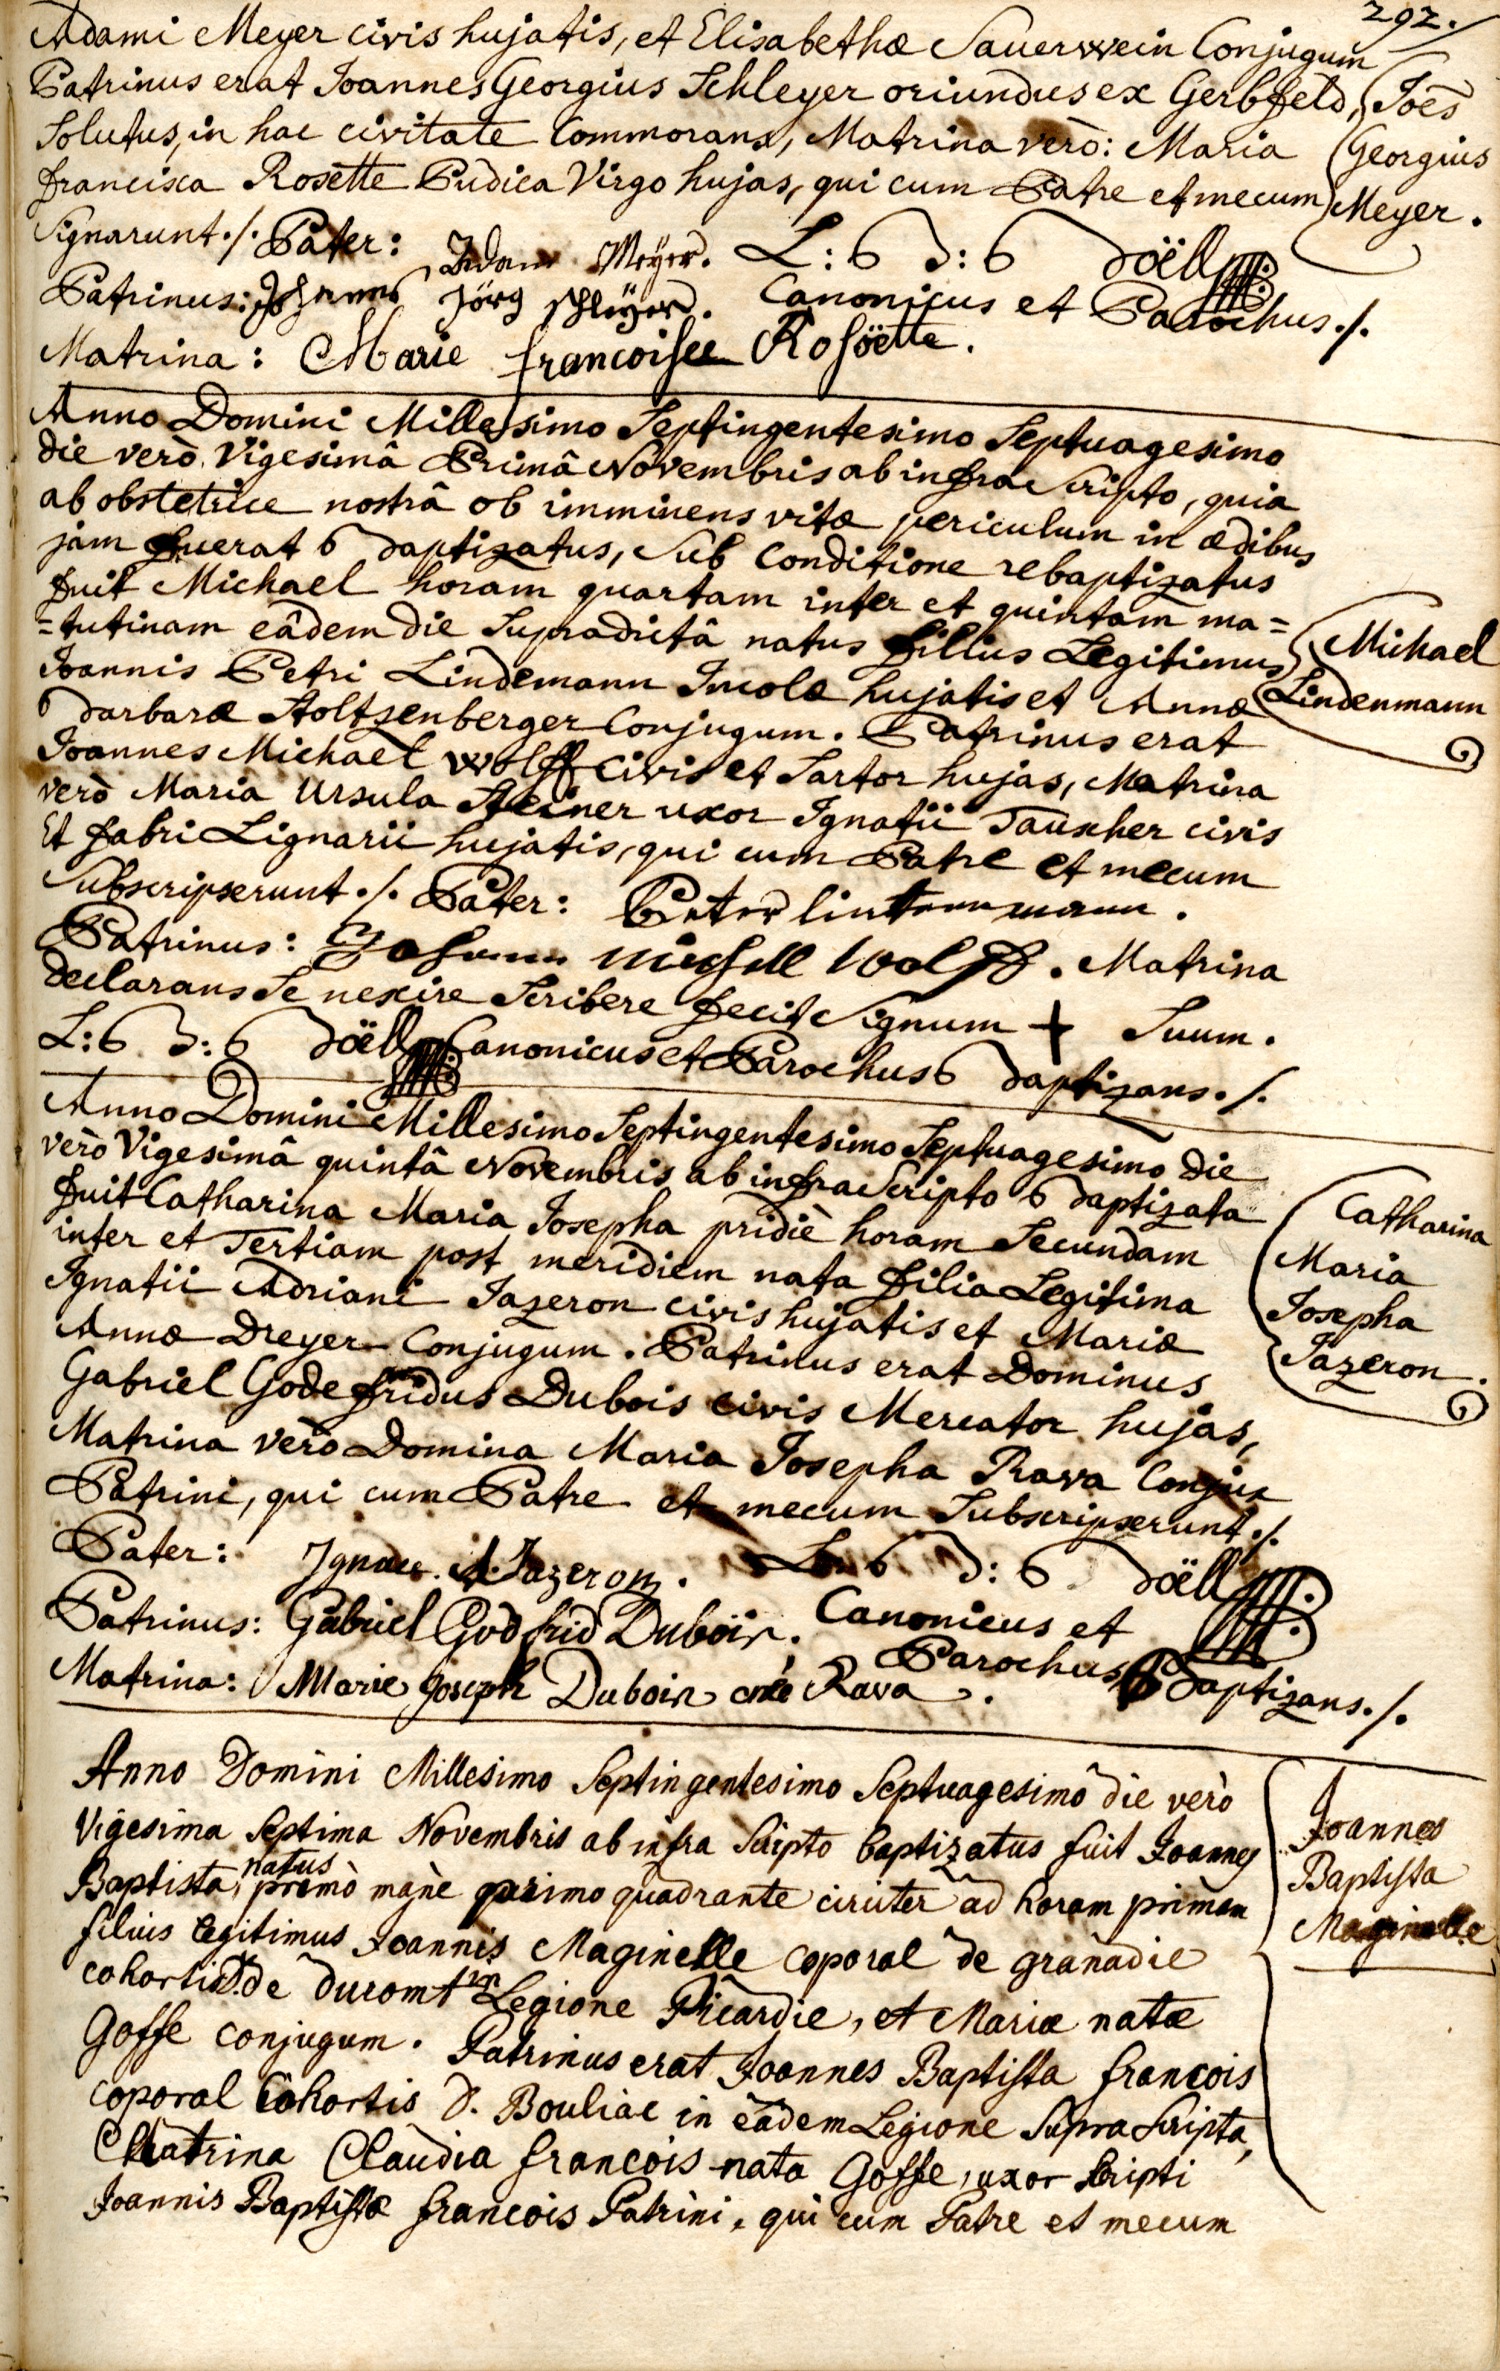 292./
Adami Meyer civis hujatis, et Elisabethæ Sauerwein Conjugum
Patrinus erat Joannes Georgius Schleyer oriundus ex Gerbfeld,
Solutus, in hac civitate Commorans, Matrina verò: Maria
francisca Rosette Pudica Virgo hujas, qui cum Patre et mecum
Signarunt ./. Pater: Adam Meyer.
Joês
Georgius
Meyer.
L: B D: B Böll
Patrinus: Johannes Jörg schleyer. Canonicus et Parochus ./.
Matrina: Marie francoisse Rosöette.
Anno Domini Millesimo Septingentesimo Septuagesimo
die verò Vigesimâ Primâ Novembris ab infra Scripto, quia
ab obstetrice nostrâ ob imminens vitæ periculum in ædibus
jam fuerat Baptizatus, Sub Conditione rebaptizatus
fuit Michael horam quartam inter et quintam ma=
=tutinam eâdem die Supradictâ natus fillius Legitimus
Joannis Petri Lindemann Incolæ hujatis et Annæ
Barbaræ Stoltzenberger Conjugum. Patrinus erat
Joannes Michael Wolff civis et Sartor hujas, Matrina
verò Maria Ursula Steiner uxor Ignatii Tauscher civis
Et fabri Lignarii hujatis, qui cum Patre et mecum
Subscripserunt ./. Pater: Peter lintenmann.
Michael
Lindenmann
Patrinus: Johann michell Wolff. Matrina
declarans Se nescire Scribere fecit Signum + Suum.
L: B D: B Böll Canonicus et Parochus Baptizans ./.
Anno Domini Millesimo Septingentesimo Septuagesimo die
verò Vigesimâ quintâ Novembris ab infra Scripto Baptizata
fuit Catharina Maria Josepha pridiè horam Secundam
inter et Tertiam post meridiem nata filia Legitima
Ignatii Adriani Jazeron civis hujatis et Mariæ
Annæ Dreyer Conjugum. Patrinus erat Dominus
Gabriel Godefridus Dubois civis Mercator hujas,
Matrina verò Domina Maria Josepha Rava Conjux
Patrini, qui cum Patre et mecum Subscripserunt ./.
Catharina
Maria
Josepha
Jazeron.
Pater: Ignace. A. Jazeron. L: B D: B Böll
Patrinus: Gabriel Godfrid Dubois. Canonicus et
Parochus Baptizans ./.
Matrina: Marie Joseph Dubois née Rava.
Anno Domini Millesimo Septingentesimo Septuagesimo die verò
Vigesima Septima Novembris ab infra Scripto baptizatus fuit Joannes
Baptista, natus primò manè primo quadrante circiter ad horam primam
filius legitimus Joannis Maginelle coporal de granadie
cohortis D. de ducomt in Legione Picardie, et Mariæ natæ
Goffe conjugum. Patrinus erat Joannes Baptista francois
coporal Cohortis D. Bouliac in eâdem Legione Supra Scripta,
Matrina Claudia francois nata Goffe, uxor scripti
Joannis Baptistæ francois Patrini, qui cum Patre et mecum
Joannes
Baptista
Maginelle